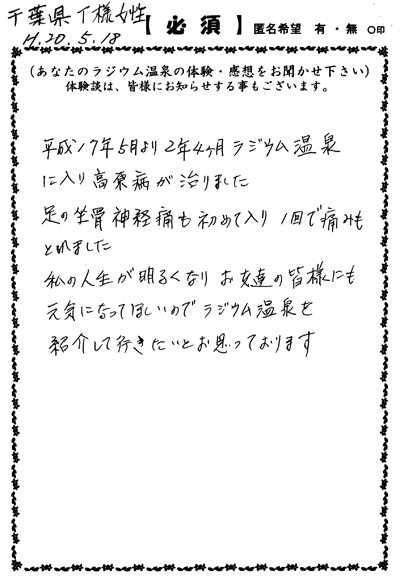 千葉県 イ様 女性
H.20.5.18
【必須】 匿名希望 有・無 ○印
(あなたのラジウム温泉の体験・感想をお聞かせ下さい)
体験談は、皆様にお知らせする事もございます。
平成17年5月より2年4ヶ月 ラジウム温泉
に入り 高原病が治りました
足の坐骨神経痛も初めて入り 1回で痛みも
とれました
私の人生が明るくなり お友達の皆様にも
元気になってほしいのでラジウム温泉を
紹介して行きたいとお思っております